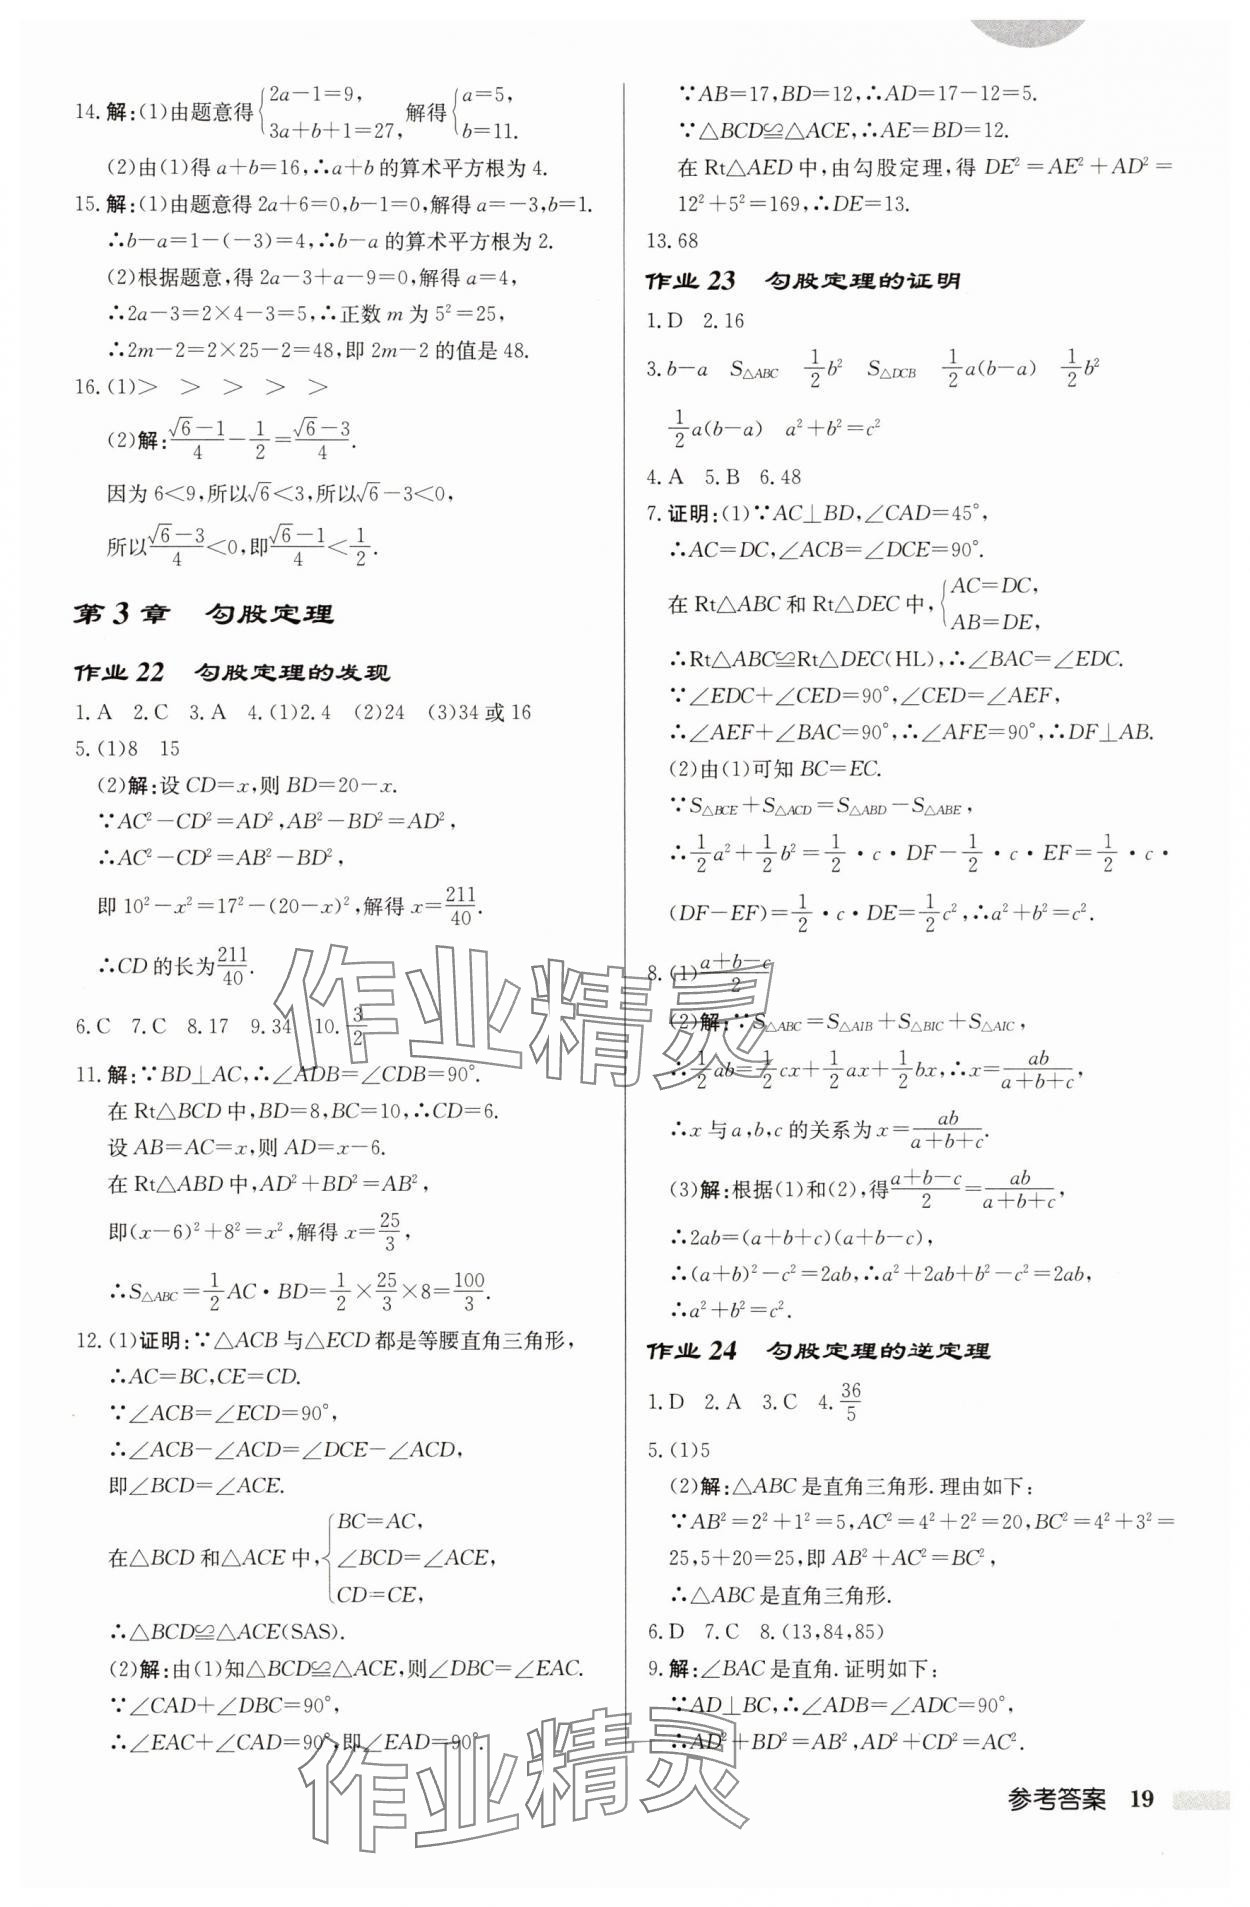 14.解:(1)由题意得{2a-1=9, 3a+b+1=27, 解得{a=5, b=11.
(2)由(1)得 a+b=16,∴a+b 的算术平方根为 4.
15.解:(1)由题意得 2a+6=0,b-1=0,解得 a=-3,b=1.
∴b-a=1-(-3)=4,∴b-a 的算术平方根为 2.
(2)根据题意,得 2a-3+a-9=0,解得 a=4,
∴2a-3=2×4-3=5,∴正数 m 为 5²=25,
∴2m-2=2×25-2=48,即 2m-2 的值是 48.
16.(1)> > > > >
(2)解:(√6-1)/4-1/2=(√6-3)/4.
因为 6<9,所以√6<3,所以√6-3<0,
所以(√6-3)/4<0,即(√6-1)/4<1/2.
第 3 章 勾股定理
作业 22 勾股定理的发现
1.A 2.C 3.A 4.(1)2.4 (2)24 (3)34 或 16
5.(1)8 15
(2)解:设 CD=x,则 BD=20-x.
∵AC²-CD²=AD²,AB²-BD²=AD²,
∴AC²-CD²=AB²-BD²,
即 10²-x²=17²-(20-x)²,解得 x=211/40.
∴CD 的长为211/40.
6.C 7.C 8.17 9.34 10.3/2
11.解:∵BD⊥AC,∴∠ADB=∠CDB=90°.
在 Rt△BCD 中,BD=8,BC=10,∴CD=6.
设 AB=AC=x,则 AD=x-6.
在 Rt△ABD 中,AD²+BD²=AB²,
即(x-6)²+8²=x²,解得 x=25/3,
∴S△ABC=1/2AC·BD=1/2×25/3×8=100/3.
12.(1)证明:∵△ACB 与△ECD 都是等腰直角三角形,
∴AC=BC,CE=CD.
∵∠ACB=∠ECD=90°,
∴∠ACB-∠ACD=∠DCE-∠ACD,
即∠BCD=∠ACE.
在△BCD 和△ACE 中,{BC=AC, ∠BCD=∠ACE, CD=CE,
∴△BCD≌△ACE(SAS).
(2)解:由(1)知△BCD≌△ACE,则∠DBC=∠EAC.
∵∠CAD+∠DBC=90°,
∴∠EAC+∠CAD=90°,即∠EAD=90°.
∵AB=17,BD=12,∴AD=17-12=5.
∵△BCD≌△ACE,∴AE=BD=12.
在 Rt△AED 中,由勾股定理,得 DE²=AE²+AD²=
12²+5²=169,∴DE=13.
13.68
作业 23 勾股定理的证明
1.D 2.16
3.b-a S△ABC 1/2b² S△DCB 1/2a(b-a) 1/2b²
1/2a(b-a) a²+b²=c²
4.A 5.B 6.48
7.证明:(1)∵AC⊥BD,∠CAD=45°,
∴AC=DC,∠ACB=∠DCE=90°.
在 Rt△ABC 和 Rt△DEC 中,{AC=DC, AB=DE,
∴Rt△ABC≌Rt△DEC(HL),∴∠BAC=∠EDC.
∵∠EDC+∠CED=90°,∠CED=∠AEF,
∴∠AEF+∠BAC=90°,∴∠AFE=90°,∴DF⊥AB.
(2)由(1)可知 BC=EC.
∵S△BCE+S△ACD=S△ABD-S△ABE,
∴1/2a²+1/2b²=1/2·c·DF-1/2·c·EF=1/2·c·
(DF-EF)=1/2·c·DE=1/2c²,∴a²+b²=c².
8.(1)(a+b-c)/2
(2)解:∵S△ABC=S△AIB+S△BIC+S△AIC,
∴1/2ab=1/2cx+1/2ax+1/2bx,∴x=ab/(a+b+c),
∴x 与 a,b,c 的关系为 x=ab/(a+b+c).
(3)解:根据(1)和(2),得(a+b-c)/2=ab/(a+b+c),
∴2ab=(a+b+c)(a+b-c),
∴(a+b)²-c²=2ab,∴a²+2ab+b²-c²=2ab,
∴a²+b²=c².
作业 24 勾股定理的逆定理
1.D 2.A 3.C 4.36/5
5.(1)5
(2)解:△ABC 是直角三角形.理由如下:
∵AB²=2²+1²=5,AC²=4²+2²=20,BC²=4²+3²=
25,5+20=25,即 AB²+AC²=BC²,
∴△ABC 是直角三角形.
6.D 7.C 8.(13,84,85)
9.解:∠BAC 是直角.证明如下:
∵AD⊥BC,∴∠ADB=∠ADC=90°,
∴AD²+BD²=AB²,AD²+CD²=AC².
参考答案 19
作业精灵
作业精灵